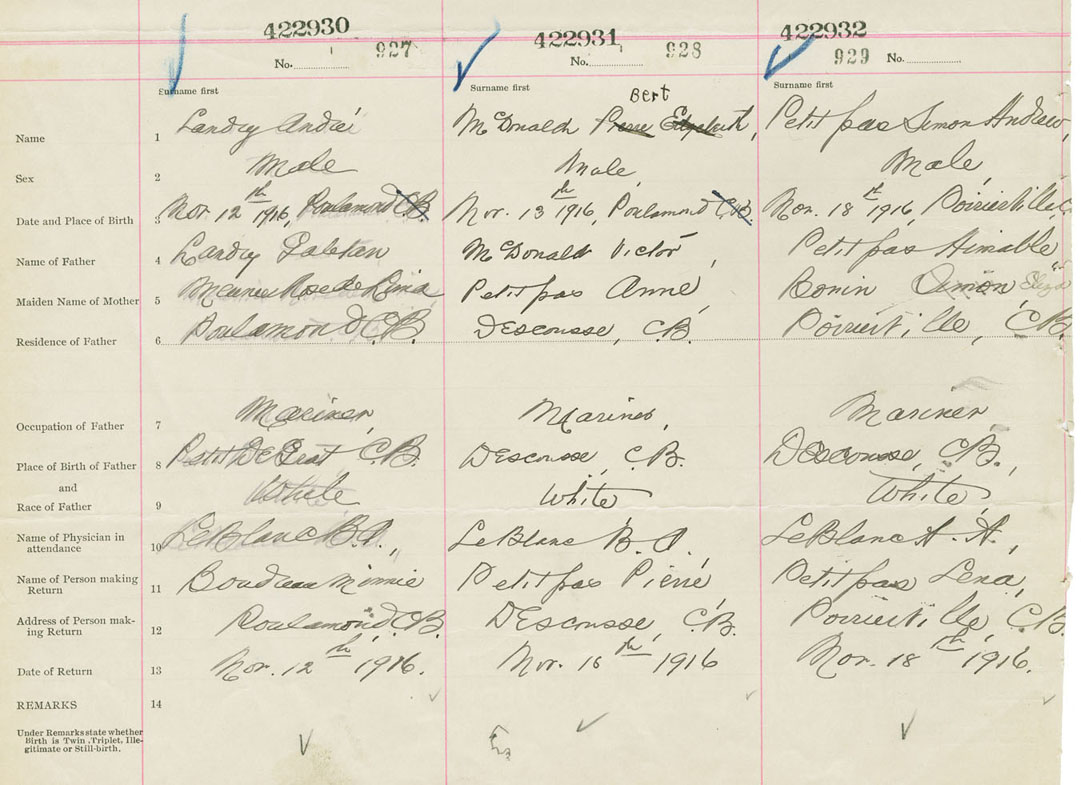 422930 422931 422932
No. 927 No. 928 929 No.
Surname first Surname first Surname first
Bert
Name 1 Landry André McDonald Pierre Elizabeth, Petitpas Simon Andrew,
Sex 2 Male Male, Male,
Date and Place of Birth 3 Nov. 12th 1916, Poulamond C.B. Nov. 13th 1916, Poulamond C.B. Nov. 18th 1916, Poirierville,
Name of Father 4 Landry McDonald Victor, Petitpas Aimable
Maiden Name of Mother 5 Rose de Lima Petitpas Anne, Bonin
Residence of Father 6 Poulamond C.B. Descousse, C.B. Poirierville, C.B.
Occupation of Father 7 Mariner, Mariner, Mariner
Place of Birth of Father 8 Petit De Grat, C.B. Descousse, C.B. Descousse, C.B.,
and
Race of Father 9 White White, White,
Name of Physician in
attendance 10 LeBlanc B. A., LeBlanc B. A. LeBlanc A. A.,
Name of Person making
Return 11 Boudreau Minnie Petitpas Pierre Petitpas Lena,
Address of Person mak-
ing Return 12 Poulamond, C.B. Descousse, C.B. Poirierville, C.B.
Date of Return 13 Nov. 12th 1916. Nov. 16th 1916 Nov. 18th 1916.
REMARKS 14
Under Remarks state whether
Birth is Twin, Triplet, Ille-
gitimate or Still-birth.